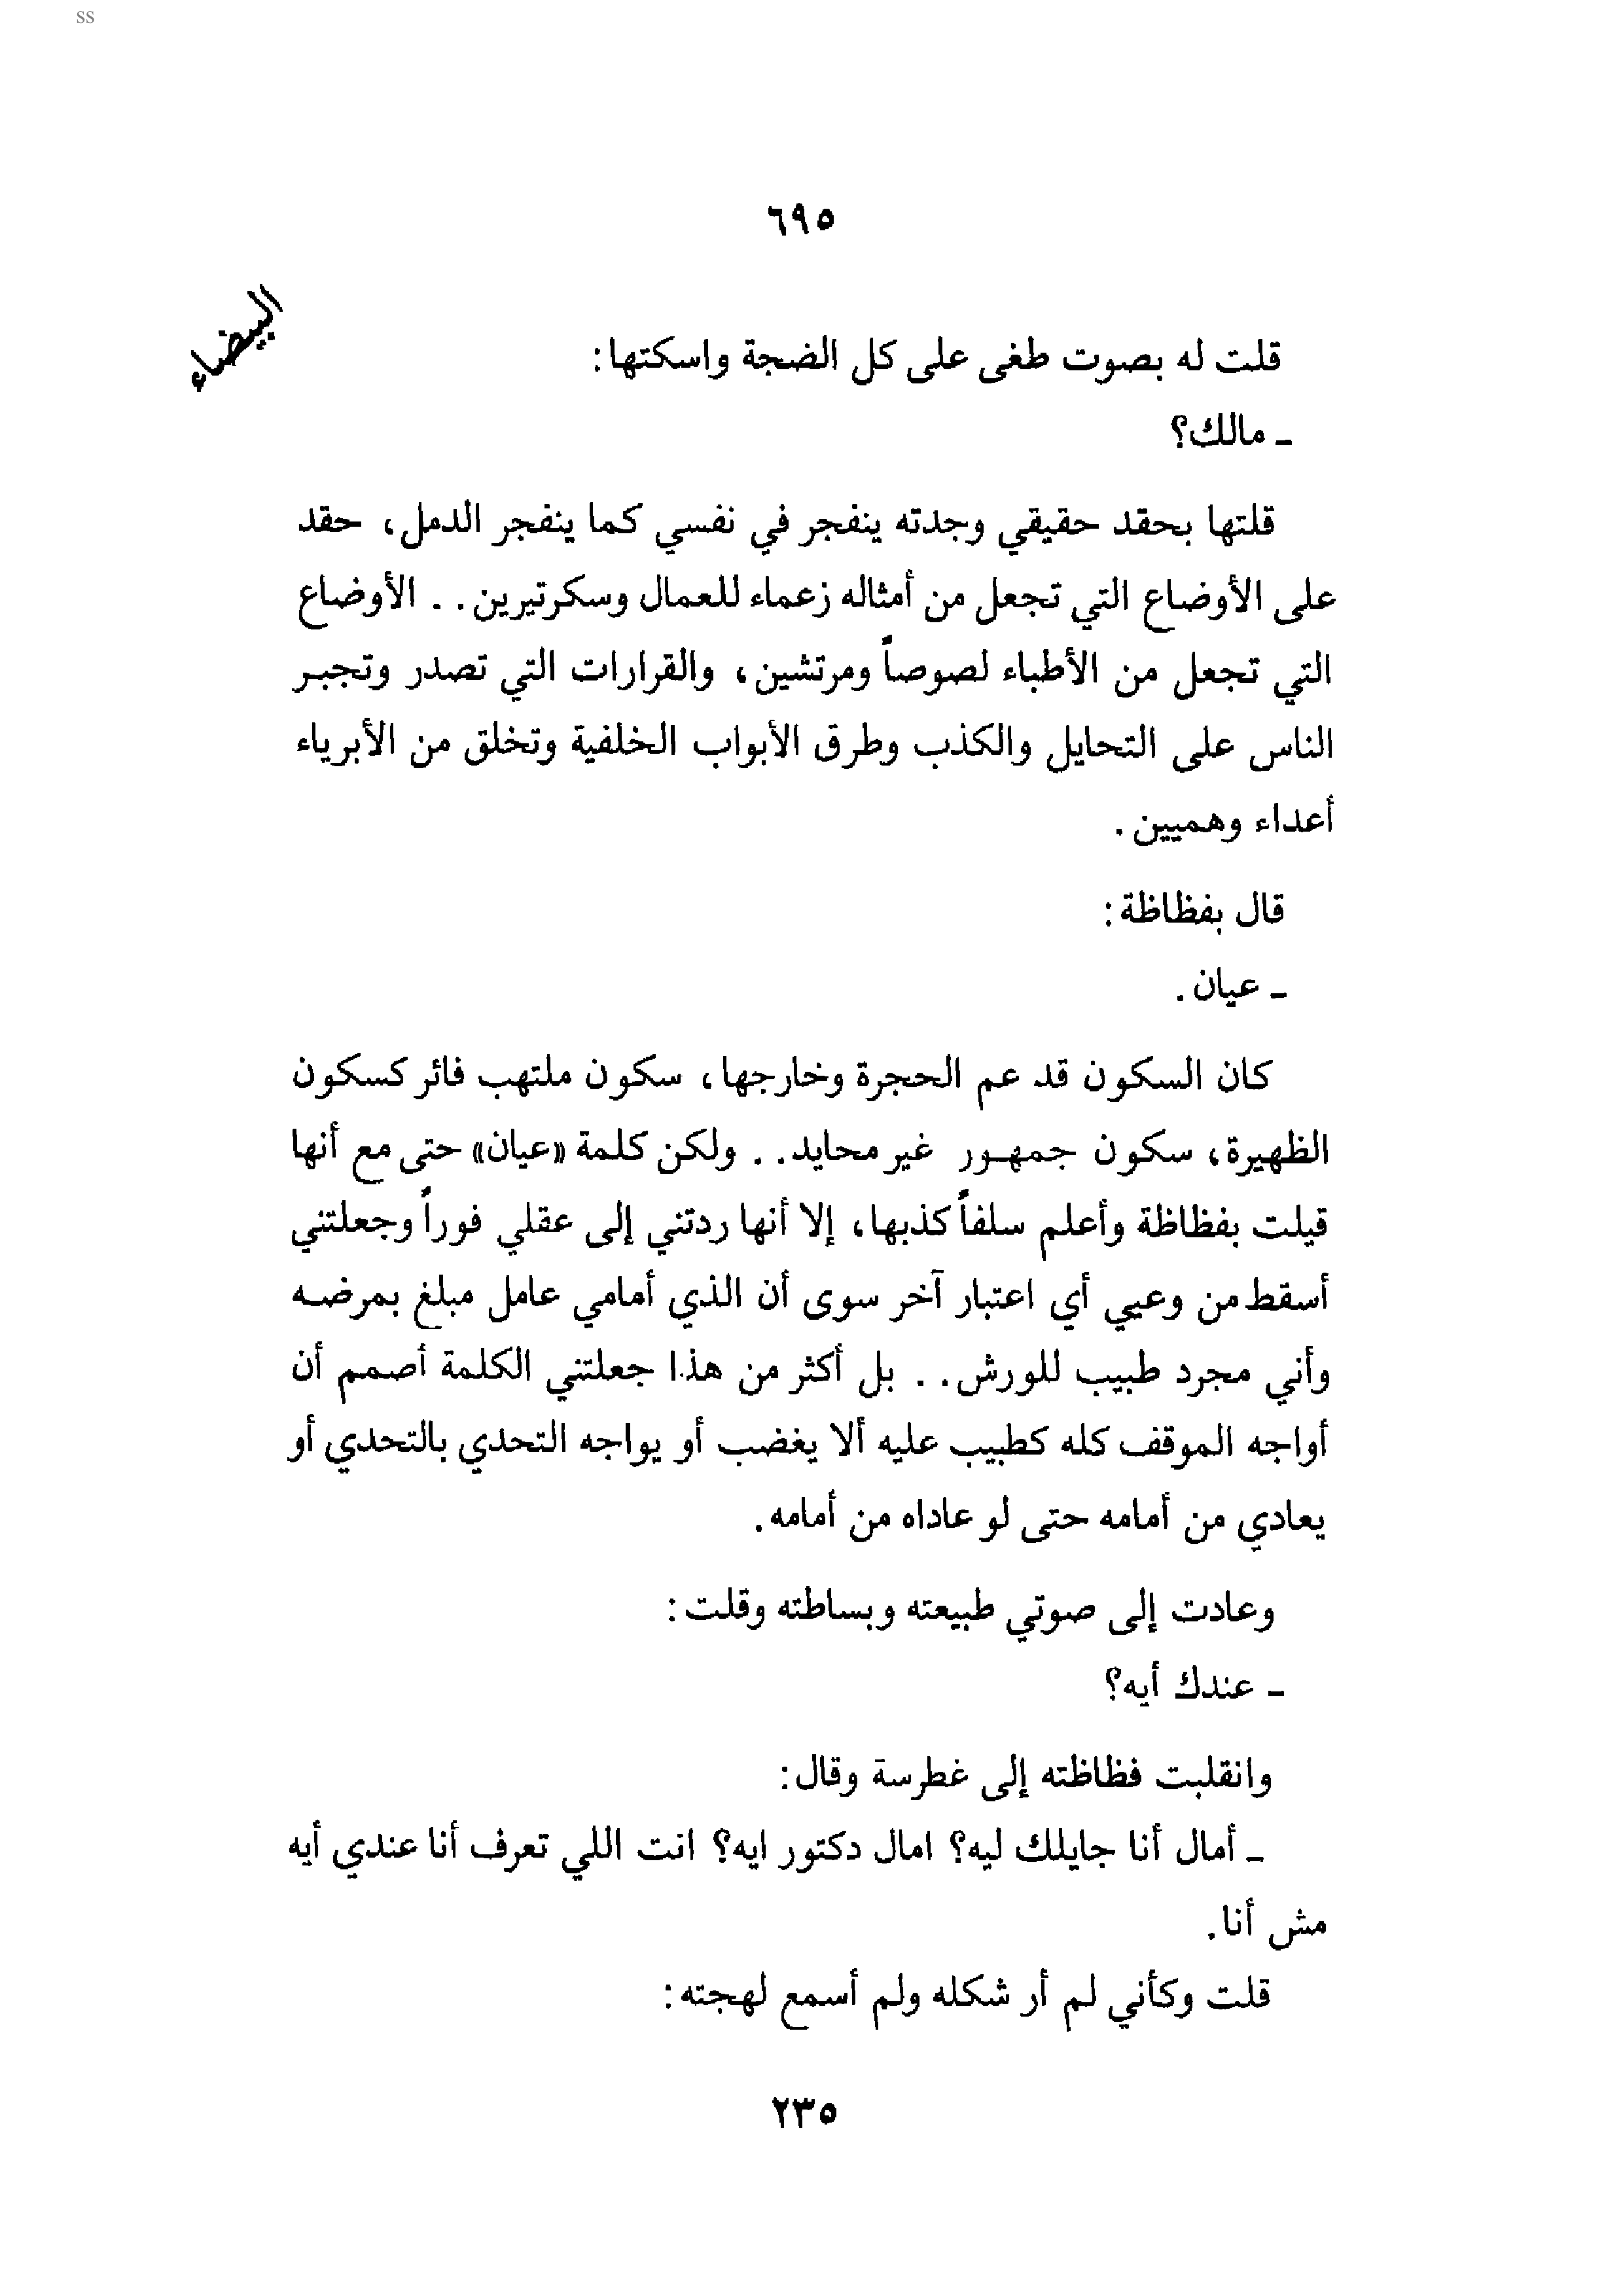 ss
٦٩٥
البيضاء
قلت له بصوت طغى على كل الضجة واسكتها:
ـ مالك؟
قلتها بحقد حقيقي وجدته ينفجر في نفسي كما ينفجر الدمل، حقد
على الأوضاع التي تجعل من أمثاله زعماء للعمال وسكرتيرين. . الأوضاع
التي تجعل من الأطباء لصوصاً ومرتشين، والقرارات التي تصدر وتجبر
الناس على التحايل والكذب وطرق الأبواب الخلفية وتخلق من الأبرياء
أعداء وهميين.
قال بفظاظة:
ـ عيان.
كان السكون قد عم الحجرة وخارجها، سكون ملتهب فائر كسكون
الظهيرة، سكون جمهور غير محايد. . ولكن كلمة «عيان» حتى مع أنها
قيلت بفظاظة وأعلم سلفاً كذبها، إلا أنها ردتني إلى عقلي فوراً وجعلتني
أسقط من وعيي أي اعتبار آخر سوى أن الذي أمامي عامل مبلغ بمرضه
وأني مجرد طبيب للورش. . بل أكثر من هذا جعلتني الكلمة أصمم أن
أواجه الموقف كله كطبيب عليه ألا يغضب أو يواجه التحدي بالتحدي أو
يعادي من أمامه حتى لو عاداه من أمامه.
وعادت إلى صوتي طبيعته وبساطته وقلت:
ـ عندك أيه؟
وانقلبت فظاظته إلى غطرسة وقال:
ـ أمال أنا جايلك ليه؟ امال دكتور ايه؟ انت اللي تعرف أنا عندي أيه
مش أنا.
قلت وكأني لم أر شكله ولم أسمع لهجته:
٢٣٥